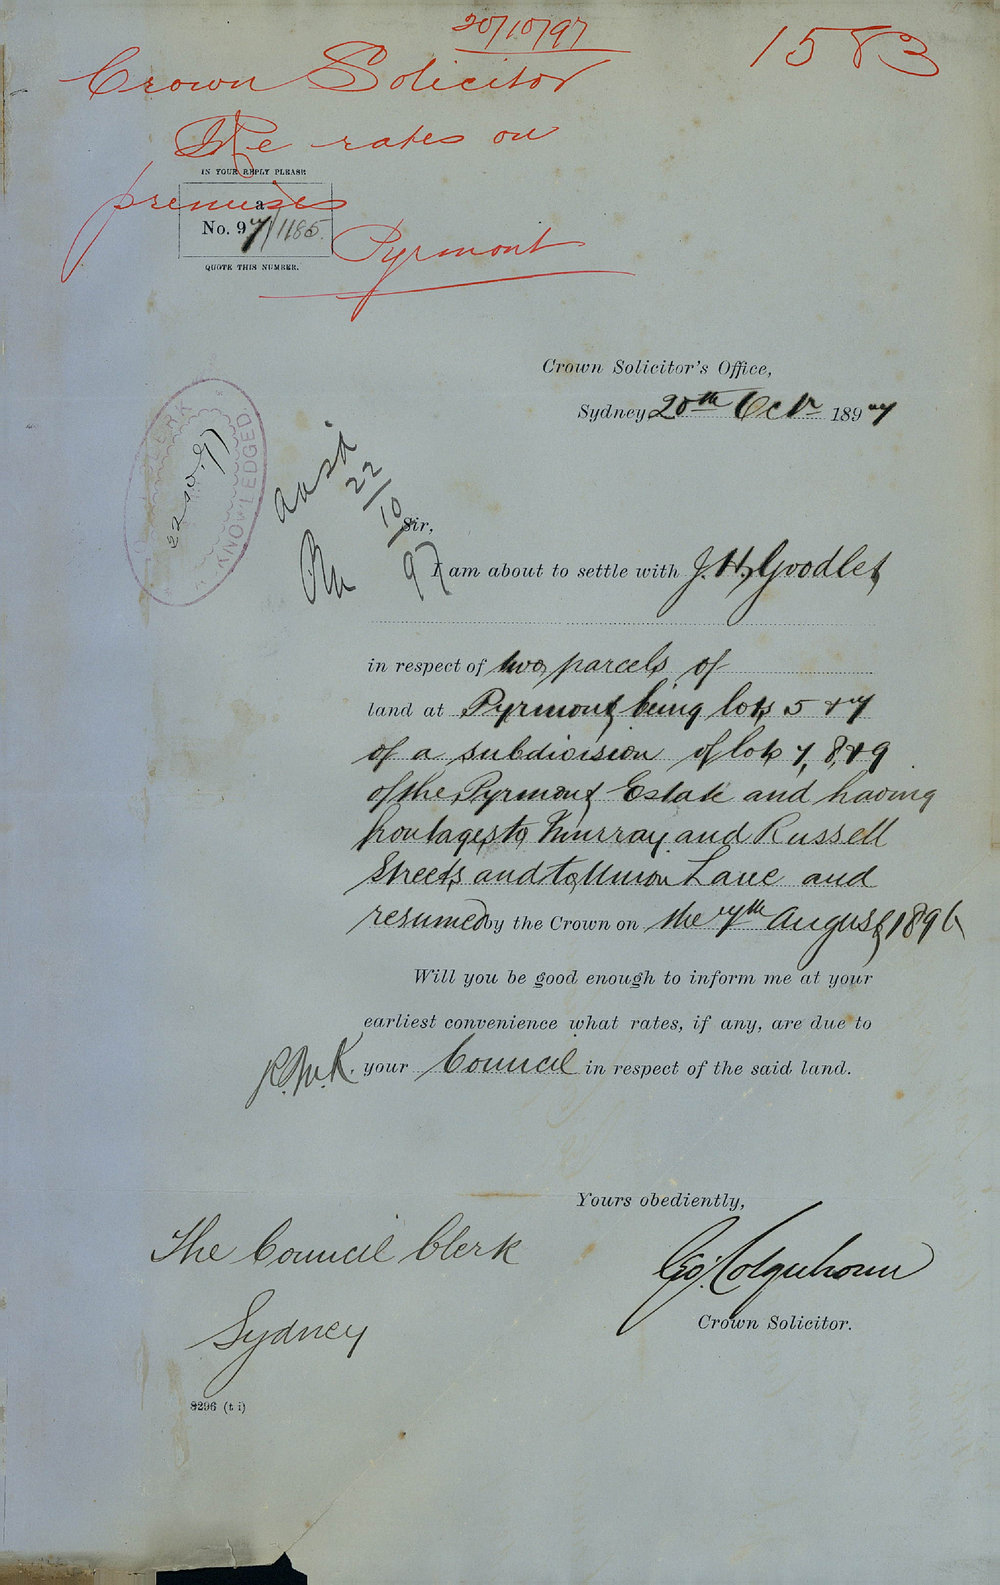 20/10/97
1583
Crown Solicitor
Re rates on
premises
Pyrmont
IN YOUR REPLY PLEASE
a
No. 97/1185.
QUOTE THIS NUMBER.
Crown Solicitor's Office,
Sydney 20th Octr 1897
CLERK
22.10.97
KNOWLEDGED
ansd
22/10
97
Sir,
I am about to settle with J. H. Goodlet
in respect of two parcels of
land at Pyrmont being lots 5 & 7
of a subdivision of lots 7, 8, & 9
of the Pyrmont Estate and having
frontages to Murray and Russell
Streets and to Union Lane and
resumed by the Crown on the 7th August 1896
Will you be good enough to inform me at your
earliest convenience what rates, if any, are due to
your Council in respect of the said land.
Yours obediently,
The Council Clerk
Geo. Colquhoun
Crown Solicitor.
Sydney
8296 (t i)